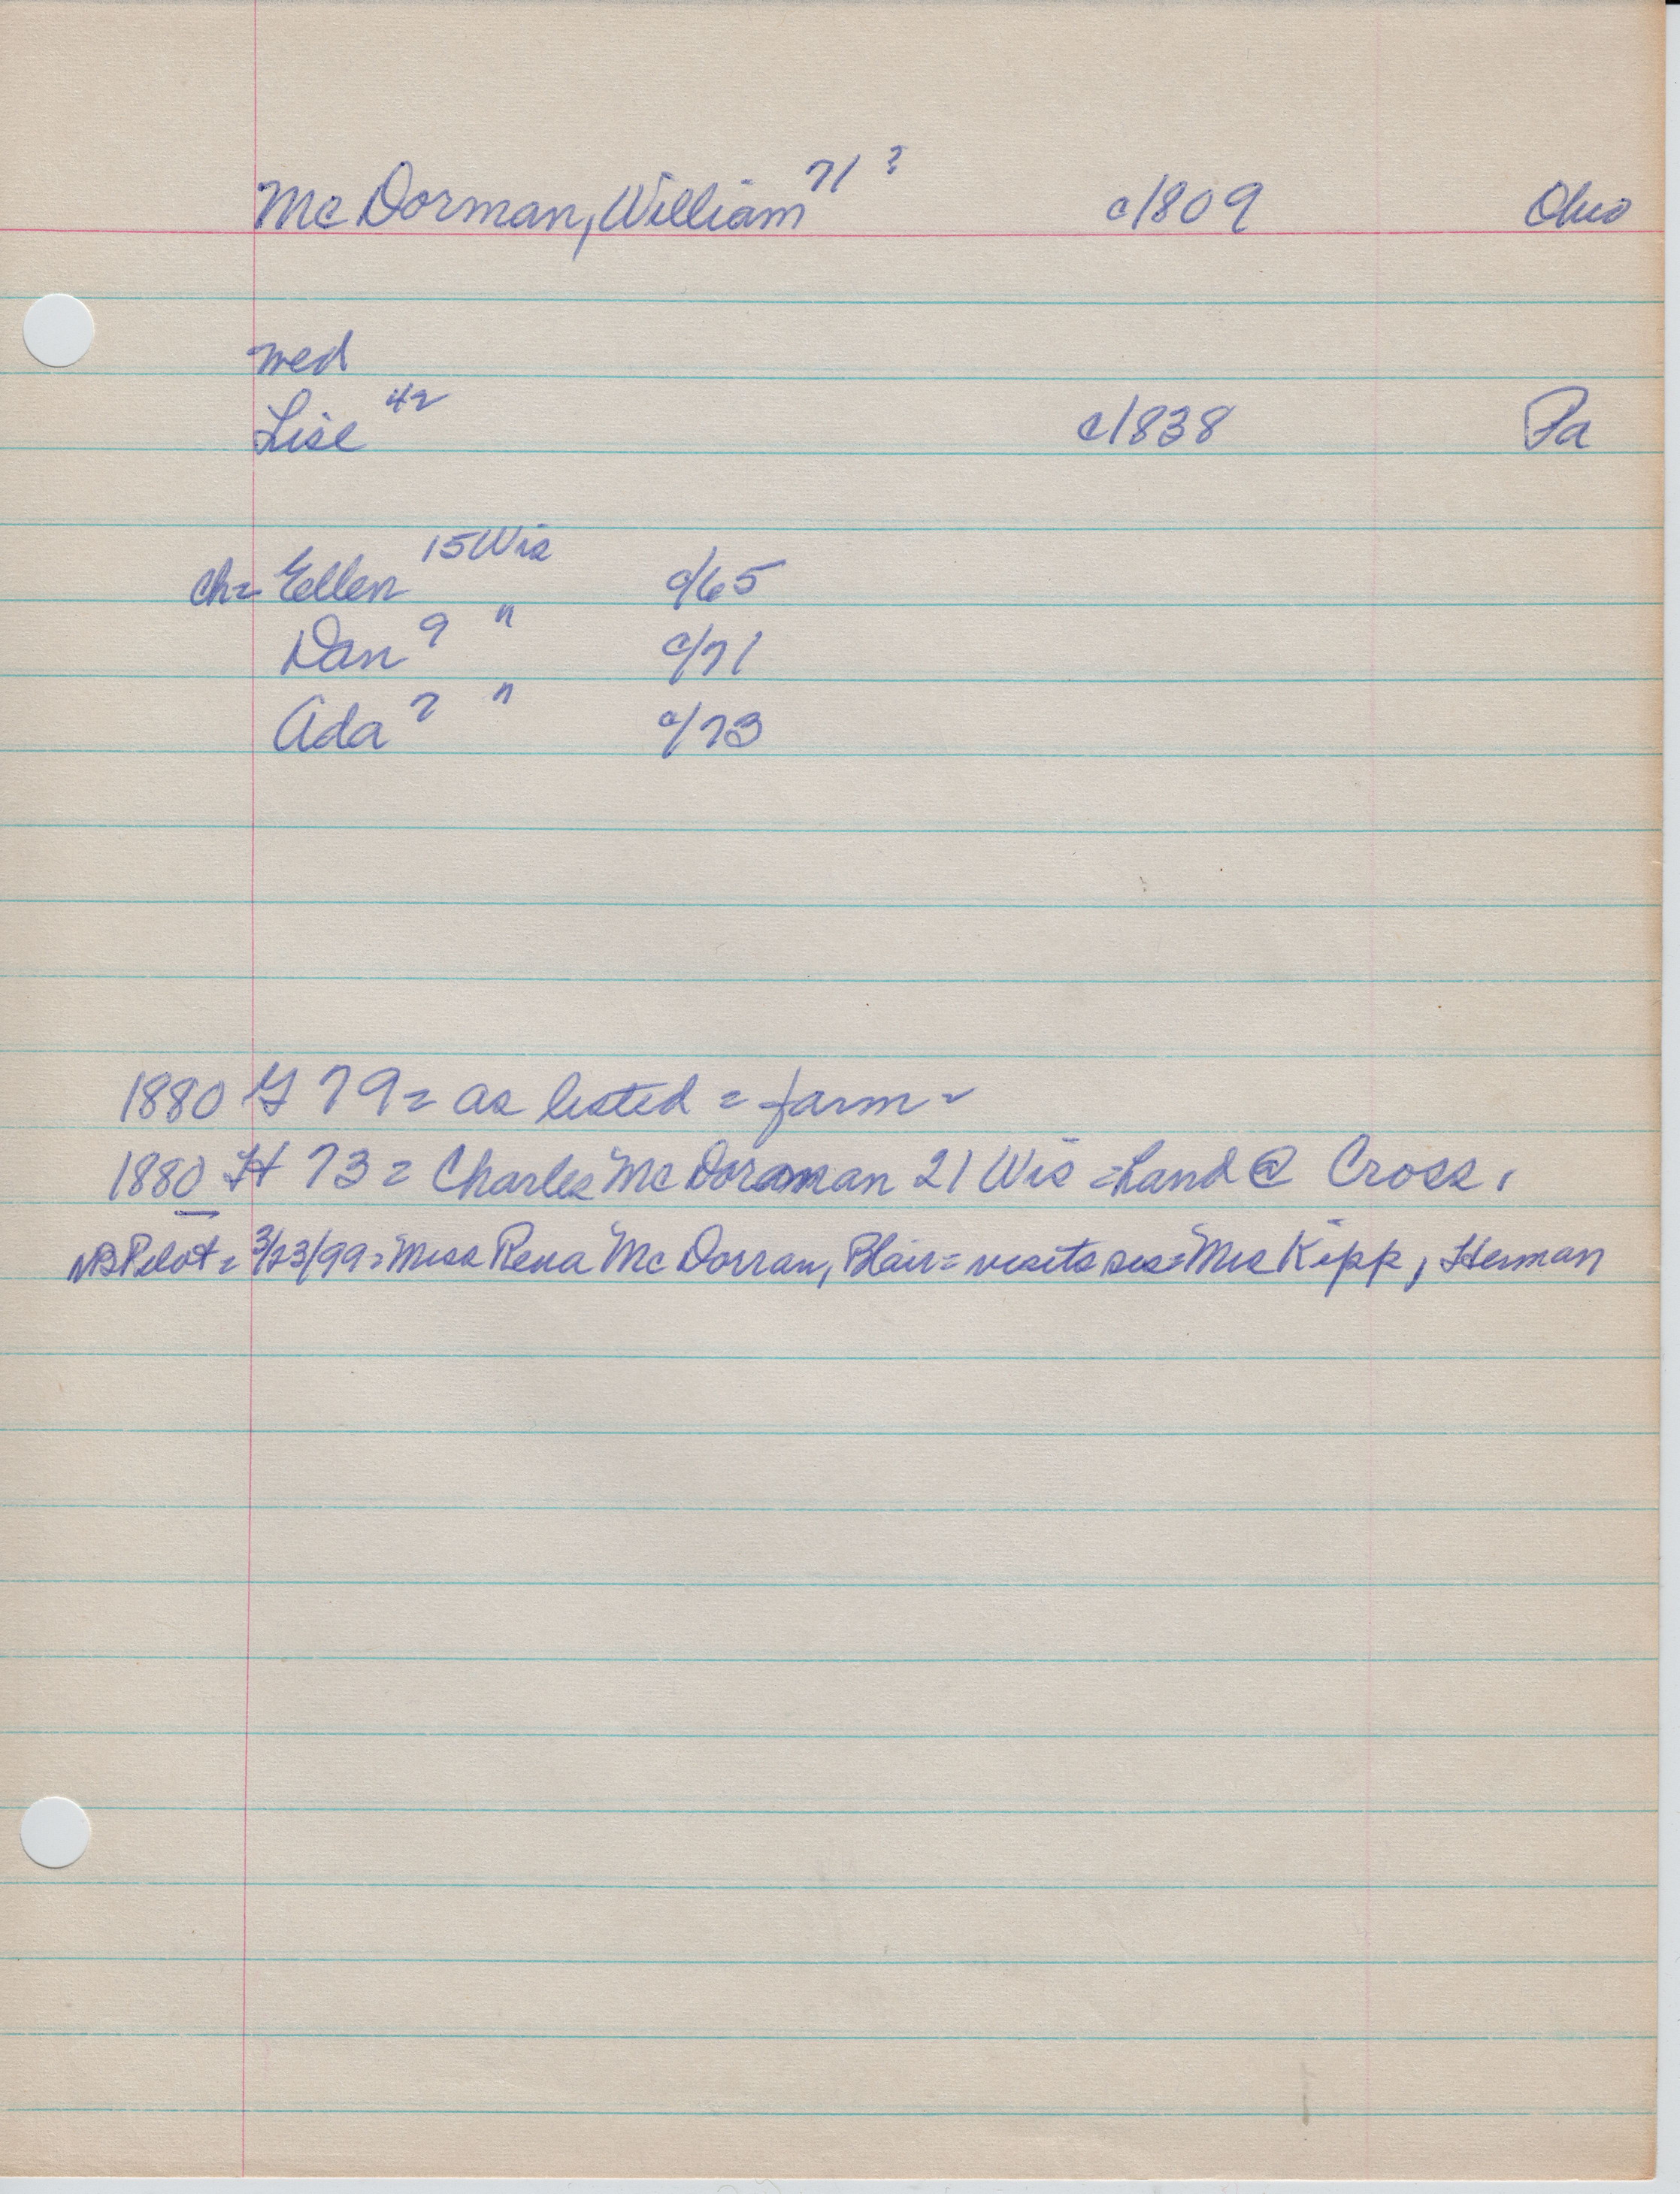 McDorman, William 71 ? c/1809 Ohio
med
Lise 42 c/1838 Pa
ch= Eellen 15 Wis c/65
Dan 9 " c/71
Ada 7 " c/73
1880 G 79 = as listed = farm =
1880 H 73 = Charles McDoraman 21 Wis = hand @ Cross,
NB Pilot = 3/23/99 = Miss Rena McDorran, Blair = visits sis = Mrs Kipp, Herman